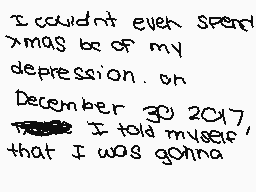 I couldnt even spend
xmas bc of my
depression. on
December 30 2017
I told myself
that I was gonna